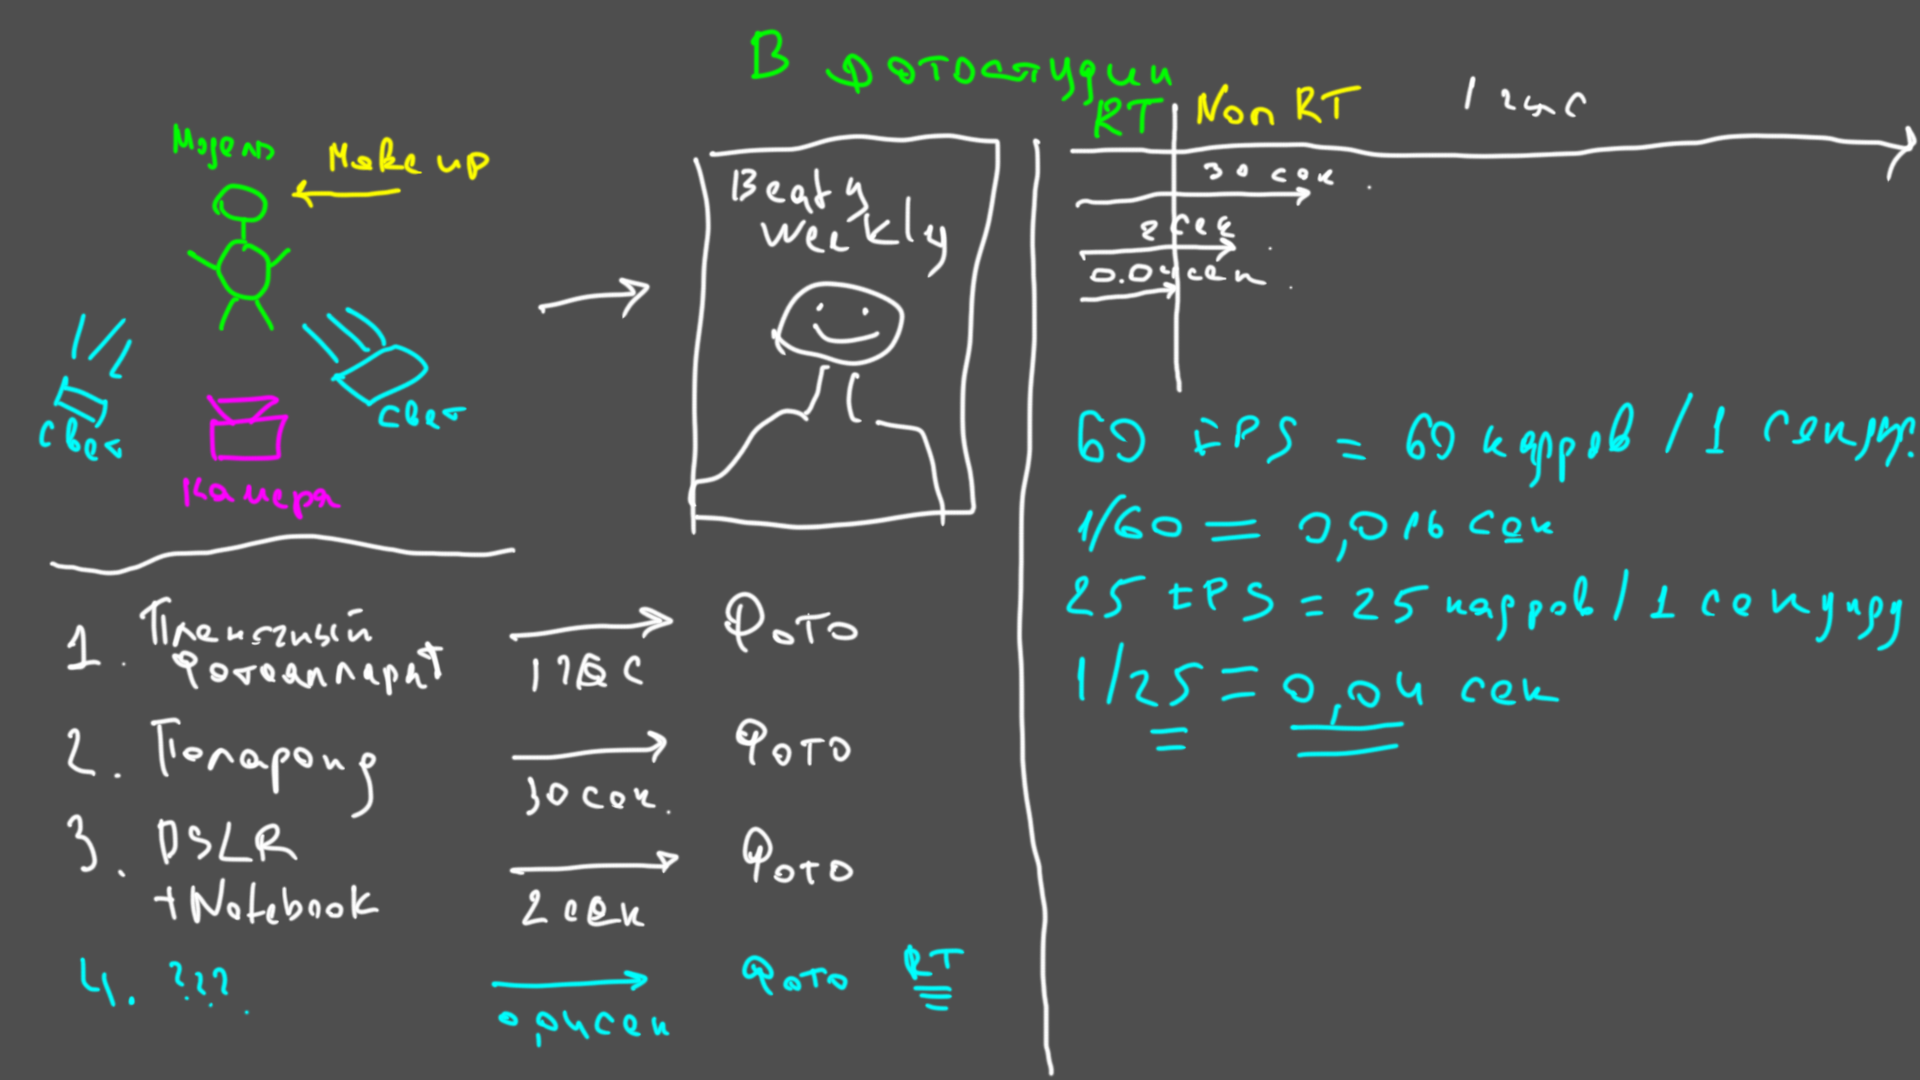 В фотостудии
Модель
Make up
свет
свет
Камера
Beaty
weekly
1. Пленочный
фотоаппарат
1 час
Фото
2. Полароид
30 сек.
Фото
3. DSLR
+Notebook
2 сек
Фото
4. ???.
0,04 сек
Фото RT
RT Non RT 1 час
30 сек.
2 сек.
0.04 сек.
60 FPS = 60 кадров / 1 секунду.
1/60 = 0,016 сек
25 FPS = 25 кадров / 1 секунду
1/25 = 0,04 сек